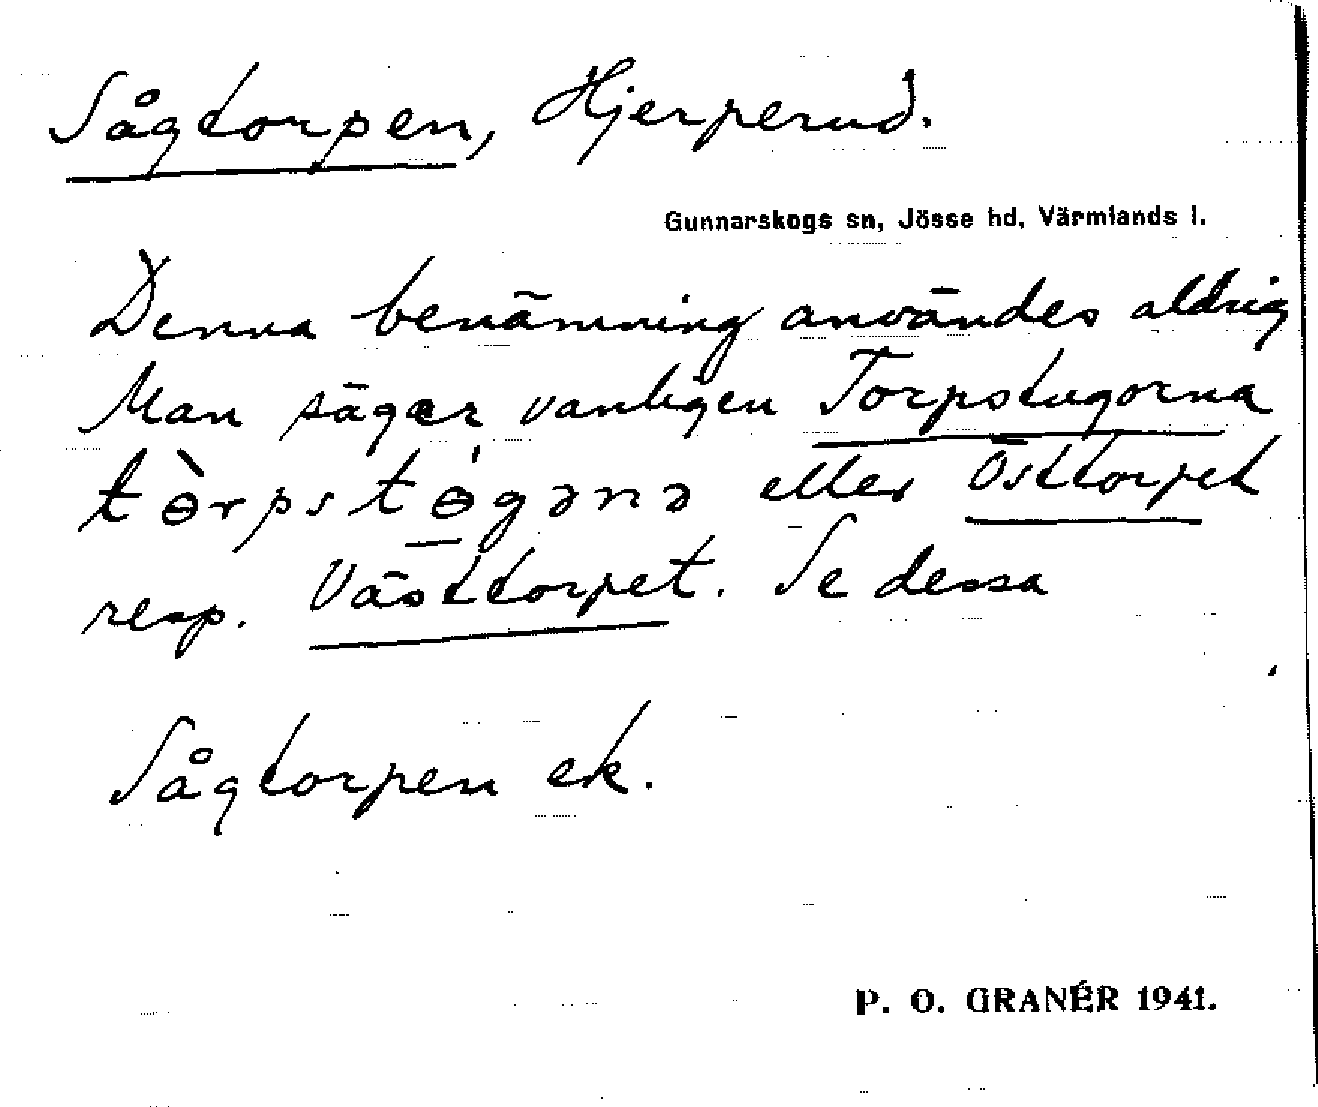 Sågtorpen, Hjerperud.
Gunnarskogs sn, Jösse hd, Värmlands l.
Denna benämning användes aldrig
Man säger vanligen Torpstugorna
tɵ̀rpstɵ́gənə eller Östtorpet
resp. Västtorpet. Se dessa
Sågtorpen ek.
P. O. GRANÉR 1941.